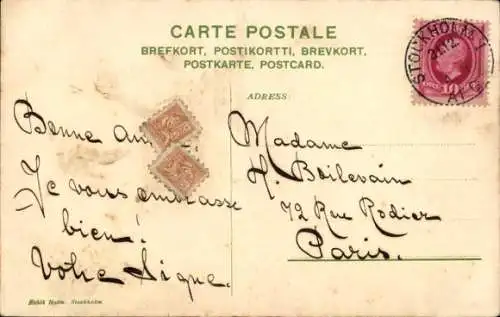 CARTE POSTALE
BREFKORT, POSTIKORTTI, BREVKORT.
POSTKARTE, POSTCARD.
STOCKHOLM 1
10
ADRESS:
Bonne
Je vous embrasse
bien!
Votre Signe.
Madame
H. Boilevain
72 Rue Rodier
Paris.
Stockholm.